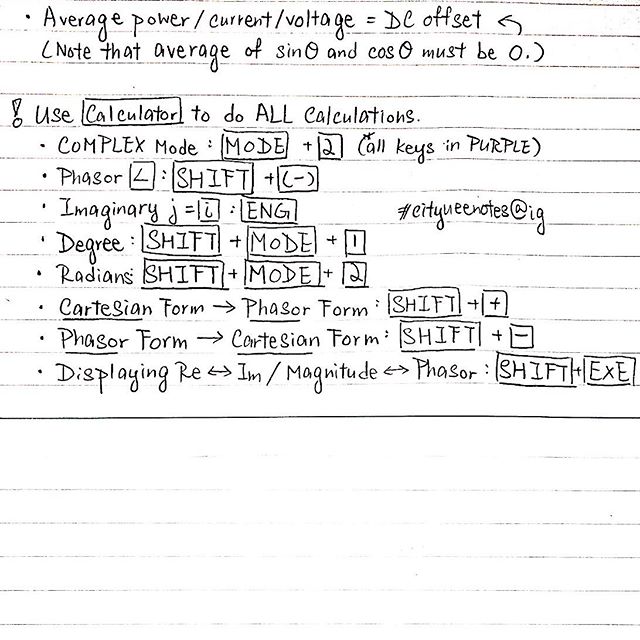 · Average power/current/voltage = DC offset
(Note that average of sinθ and cosθ must be 0.)
! Use Calculator to do ALL Calculations.
· COMPLEX Mode : MODE + 2 (*all keys in PURPLE)
· Phasor ∠ : SHIFT + (-)
· Imaginary j = i : ENG
#cityueenotes@ig
· Degree : SHIFT + MODE + 1
· Radians: SHIFT + MODE + 2
· Cartesian Form → Phasor Form : SHIFT + +
· Phasor Form → Cartesian Form : SHIFT + -
· Displaying Re ↔ Im / Magnitude ↔ Phasor : SHIFT + EXE